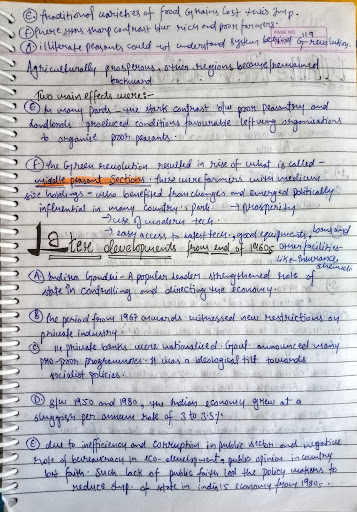 (E) traditional varieties of food Grains lost their Imp.
(F) there were sharp contrast b/w rich and poor farmers.
PAGE NO. 119
(G) illiterate peasants could not understand system behind G-revolution.
Agriculturally prosperous, other regions became/remained
backward
Two main effects were:-
(E) In many parts - the stark contrast b/w poor peasantry and
landlords produced conditions favourable left wing organisations
to organise poor peasants.
(F) the Green revolution resulted in rise of what is called -
middle peasant sections. these were farmers with medium
size holdings - who benefited from changes and emerged politically
influential in many country's parts. → prosperity
→ use of modern tech.
→ easy access to latest tech, good equipments, loans and
other facilities-
like insurance,
Later developments from end of 1960s
(A) Indira Gandhi - A popular leader strengthened role of
state in controlling and directing the economy.
(B) the period from 1967 onwards witnessed new restrictions on
private industry.
(C) 14 private banks were nationalised. Govt. announced many
pro-poor programmes. It was a ideological tilt towards
socialist policies.
(D) B/w 1950 and 1980, the Indian economy grew at a
sluggish per annum rate of 3 to 3.5%.
(E) due to inefficiency and corruption in public sector and negative
role of bureaucracy in eco-development, public opinion in country
lost faith. Such lack of public faith led the policy makers to
reduce Imp. of state in india's economy from 1980s.